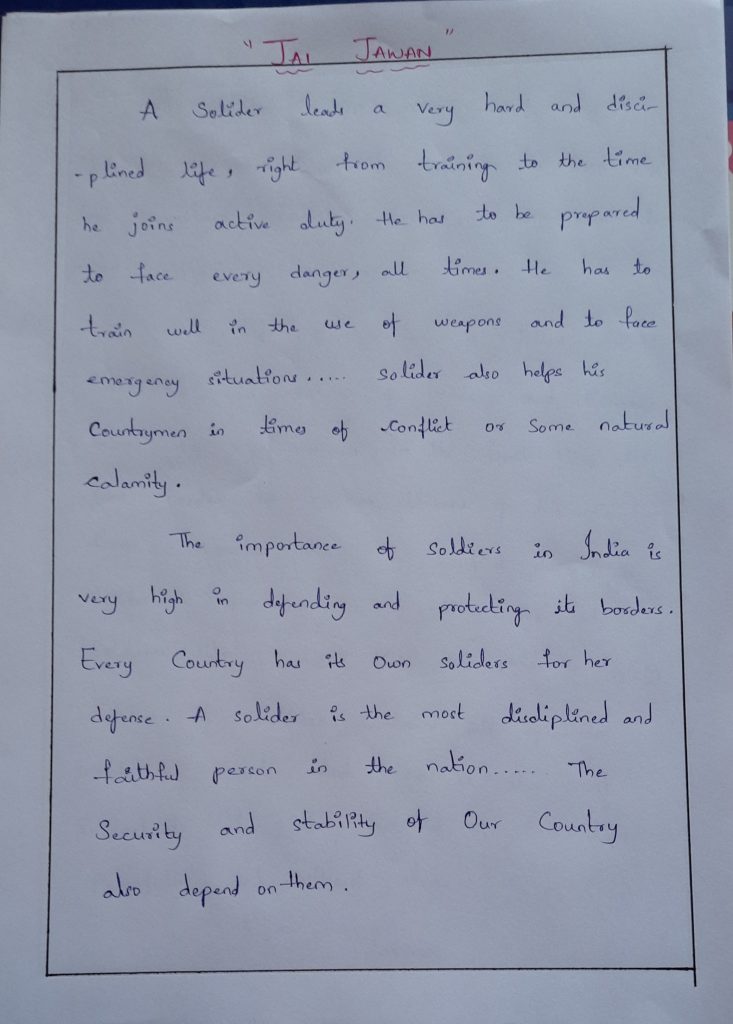 "JAI JAWAN"
A Solider leads a very hard and disci-
-plined life, right from training to the time
he joins active duty. He has to be prepared
to face every danger, all times. He has to
train well in the use of weapons and to face
emergency situations..... solider also helps his
Countrymen in times of conflict or Some natural
calamity.
The importance of soldiers in India is
very high in defending and protecting its borders.
Every Country has its Own soliders for her
defense. A solider is the most disdiplined and
faithful person in the nation..... The
Security and stability of Our Country
also depend on them.